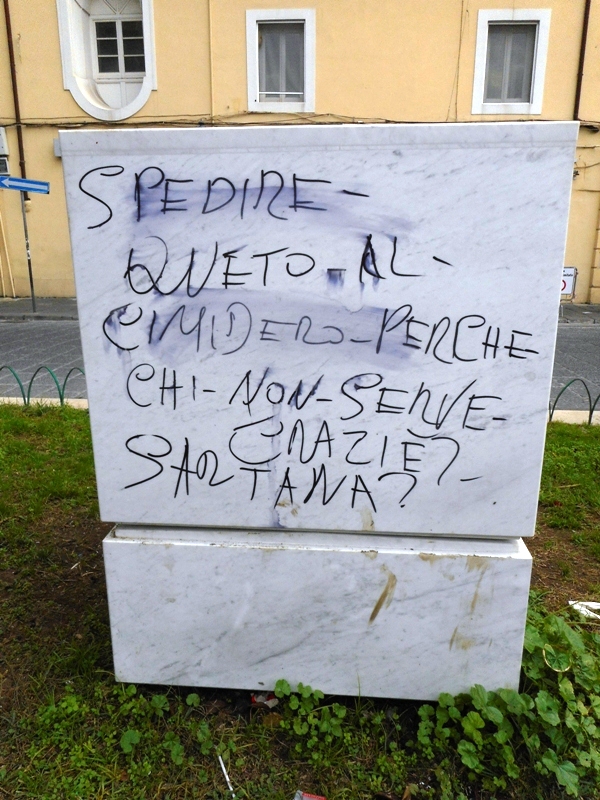 SPEDIRE-
QUETO-AL-
CIMIDERO-PERCHE
CHI-NON-SERVE-
GRAZIE?-
SARTANA?